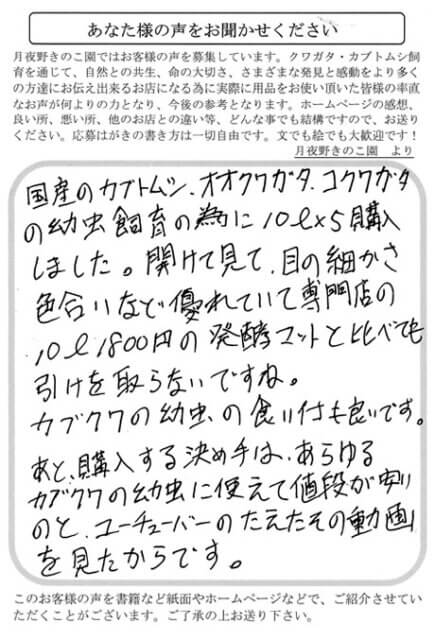 あなた様の声をお聞かせください
月夜野きのこ園ではお客様の声を募集しています。クワガタ・カブトムシ飼
育を通じて、自然との共生、命の大切さ、さまざまな発見と感動をより多く
の方達にお伝え出来るお店になる為に実際に用品をお使い頂いた皆様の率直
なお声が何よりの力となり、今後の参考となります。ホームページの感想、
良い所、悪い所、他のお店との違い等、どんな事でも結構ですので、お送り
ください。応募はがきの書き方は一切自由です。文でも絵でも大歓迎です！
月夜野きのこ園　より
国産のカブトムシ、オオクワガタ、コクワガタ
の幼虫飼育の為に10ℓ×5購入
しました。開けて見て、目の細かさ
色合いなど優れていて専門店の
10ℓ1800円の発酵マットと比べても
引けを取らないですね。
カブクワの幼虫の食い付も良いです。
あと、購入する決め手は、あらゆる
カブクワの幼虫に使えて値段が安い
のと、ユーチューバーのたえたその動画
を見たからです。
このお客様の声を書籍など紙面やホームページなどで、ご紹介させてい
ただくことがございます。ご了承の上お送り下さい。